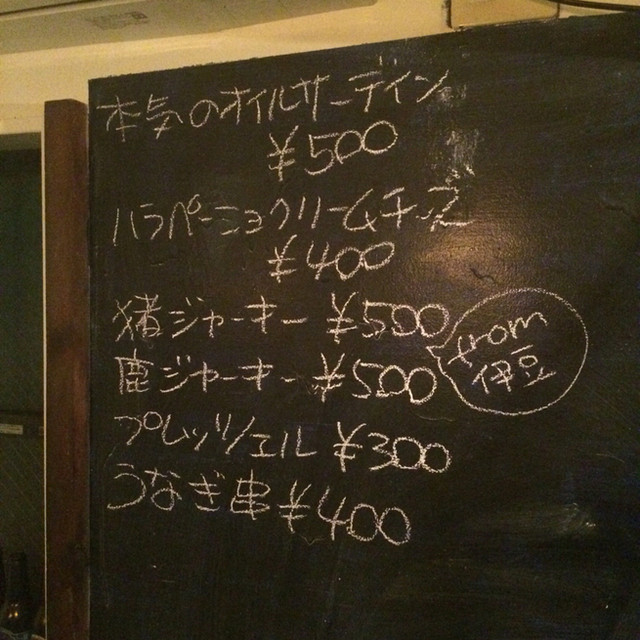 本気のオイルサーディン
¥500
ハラペーニョクリームチーズ
¥400
猪ジャーキー ¥500
鹿ジャーキー ¥500
from
伊豆
プレッツェル ¥300
うなぎ串 ¥400